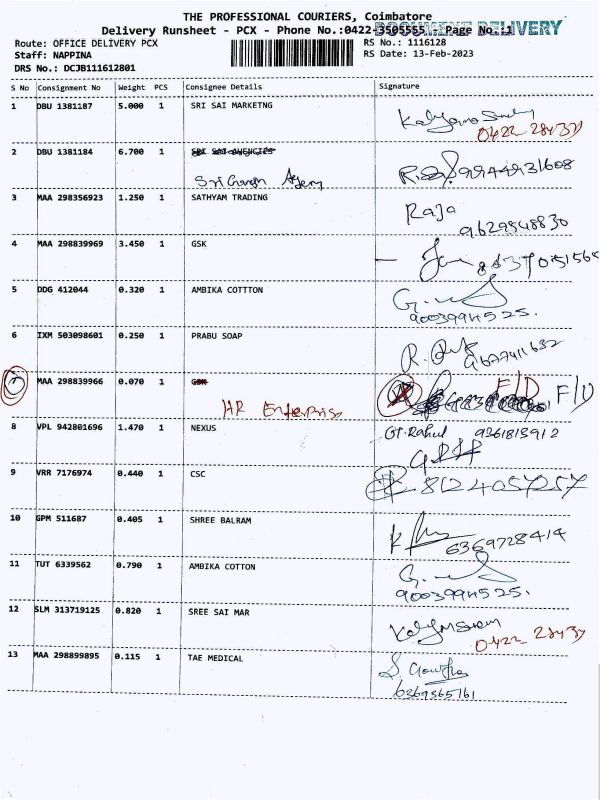 THE PROFESSIONAL COURIERS, Coimbatore
DOCUMENT DELIVERY
Delivery Runsheet - PCX - Phone No.:0422-3505555 Page No.:1
Route: OFFICE DELIVERY PCX RS No.: 1116128
Staff: NAPPINA RS Date: 13-Feb-2023
DRS No.: DCJB111612801
S No Consignment No Weight PCS Consignee Details Signature
1 DBU 1381187 5.000 1 SRI SAI MARKETNG
0422 28437
2 DBU 1381184 6.700 1 SRI SAI AGENCIES
9944931608
Sri Ganesh Agency
3 MAA 298356923 1.250 1 SATHYAM TRADING Raja
9629548830
4 MAA 298839969 3.450 1 GSK
5 DDG 412044 0.320 1 AMBIKA COTTTON
9003994525.
6 IXM 503098601 0.250 1 PRABU SOAP
9677411632
7 MAA 298839966 0.070 1 GSK F/D F/D
HR Enterprises
8 VPL 942801696 1.470 1 NEXUS GT. Rahul 9361813912
9 VRR 7176974 0.440 1 CSC 8124057257
10 GPM 511687 0.405 1 SHREE BALRAM
6369728414
11 TUT 6339562 0.790 1 AMBIKA COTTON
9003994525.
12 SLM 313719125 0.820 1 SREE SAI MAR
0422 28437
13 MAA 298899895 0.115 1 TAE MEDICAL
6369565161